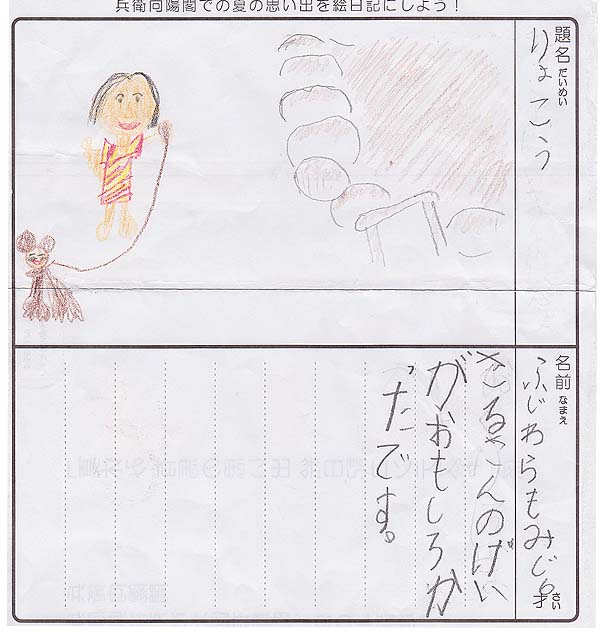 兵衛向陽閣での夏の思い出を絵日記にしよう！
題名 だいめい
りょこう
名前 なまえ
ふじわらもみじ 6才 さい
さるさんのげい
がおもしろか
ったです。